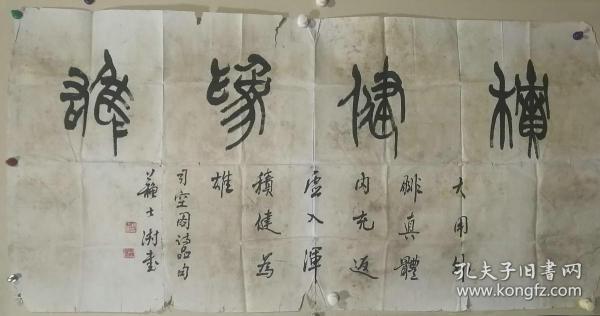 積健為雄
大用外
腓真體
內充返
虛入渾
積健為
雄
司空圖詩品句
蘇士澍書
孔夫子旧书网
www.kongfz.com